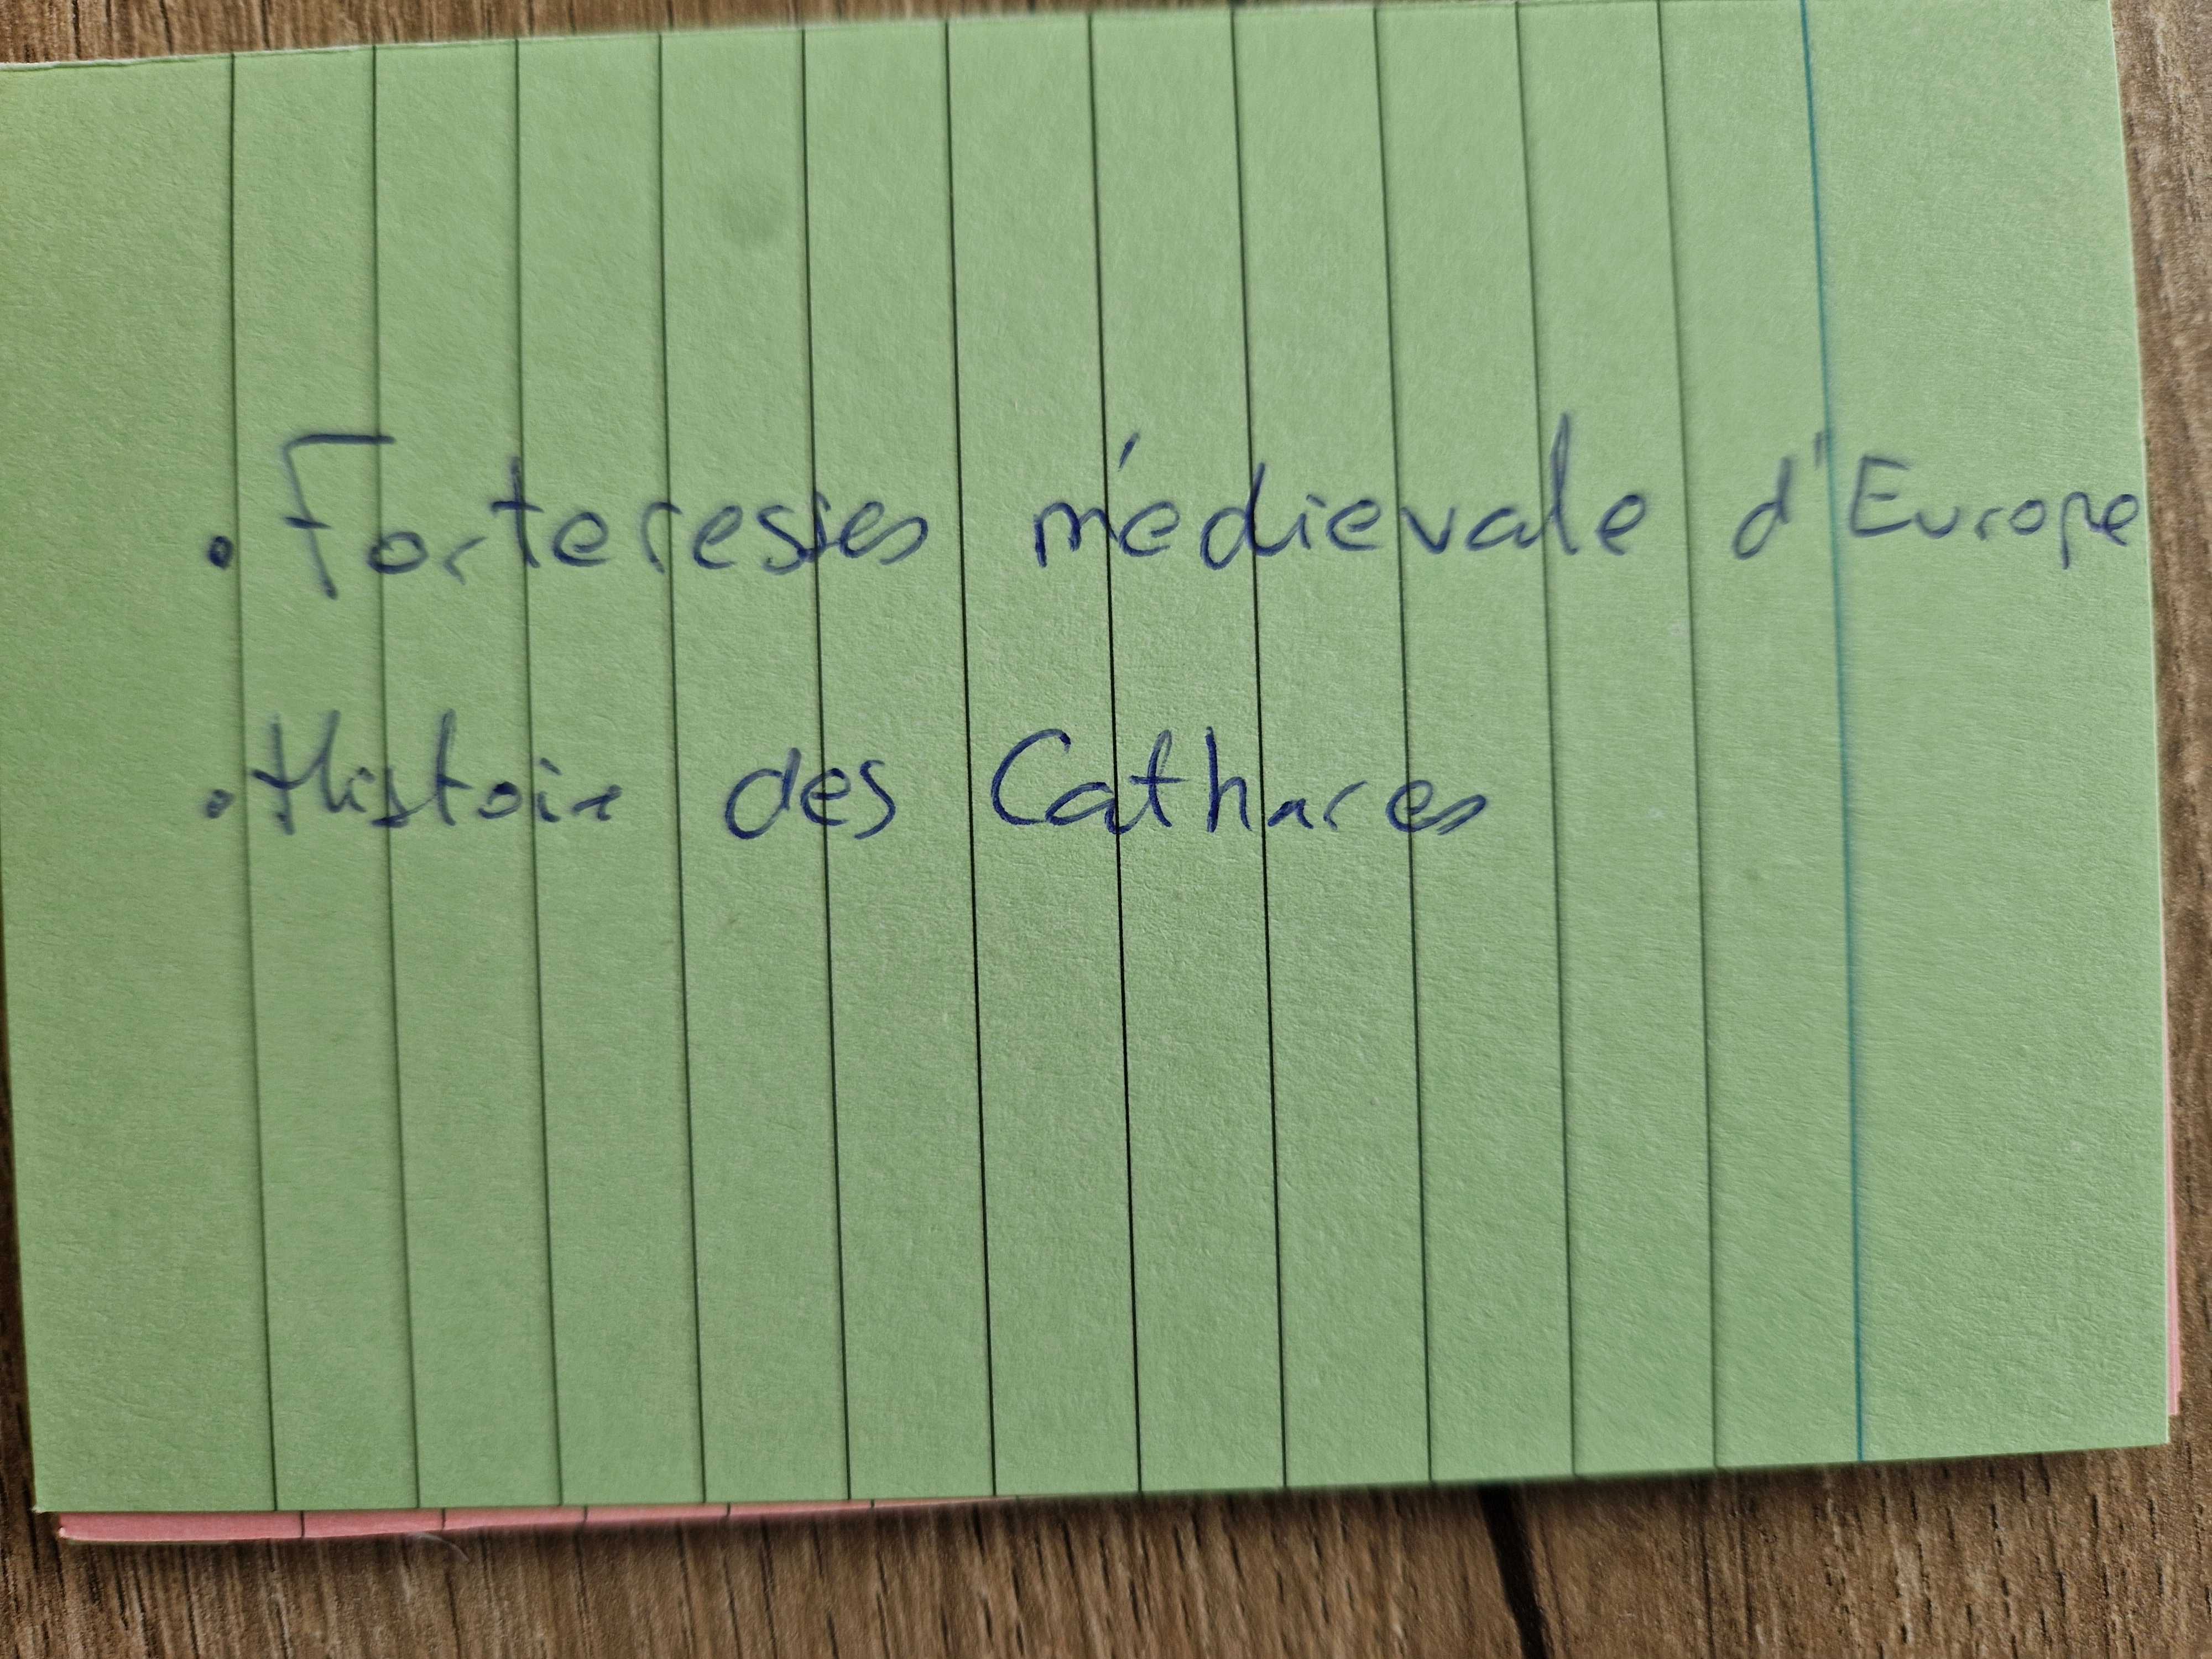 . Forteresses médievale d'Europe
. Histoire des Cathares